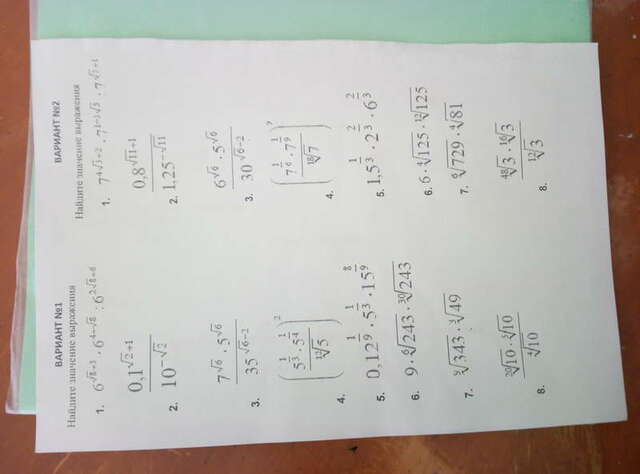 ВАРИАНТ №1
Найдите значение выражения
1. 6^(√8+3) · 6^(4−√8) : 6^(2√8+6)
2. 0,1^(√2+1) / 10^(−√2)
3. 7^(√6) · 5^(√6) / 35^(√6−2)
4. (5^(1/3) · 5^(1/4) / ¹²√5)^2
5. 0,12^(1/9) · 5^(1/3) · 15^(8/9)
6. 9 · ⁶√243 · ³⁰√243
7. ⁵√343 · ⁵√49
8. ²⁰√10 · ⁵√10 / ⁴√10
ВАРИАНТ №2
Найдите значение выражения
1. 7^(4√3+2) · 7^(1−3√3) : 7^(√3+1)
2. 0,8^(√11+1) / 1,25^(−√11)
3. 6^(√6) · 5^(√6) / 30^(√6−2)
4. (7^(1/6) · 7^(1/9) / ¹⁸√7)^9
5. 1,5^(1/3) · 2^(2/3) · 6^(2/3)
6. 6 · ⁴√125 · ¹²√125
7. ⁶√729 · ⁴√81
8. ⁴⁸√3 · ¹⁶√3 / ¹²√3